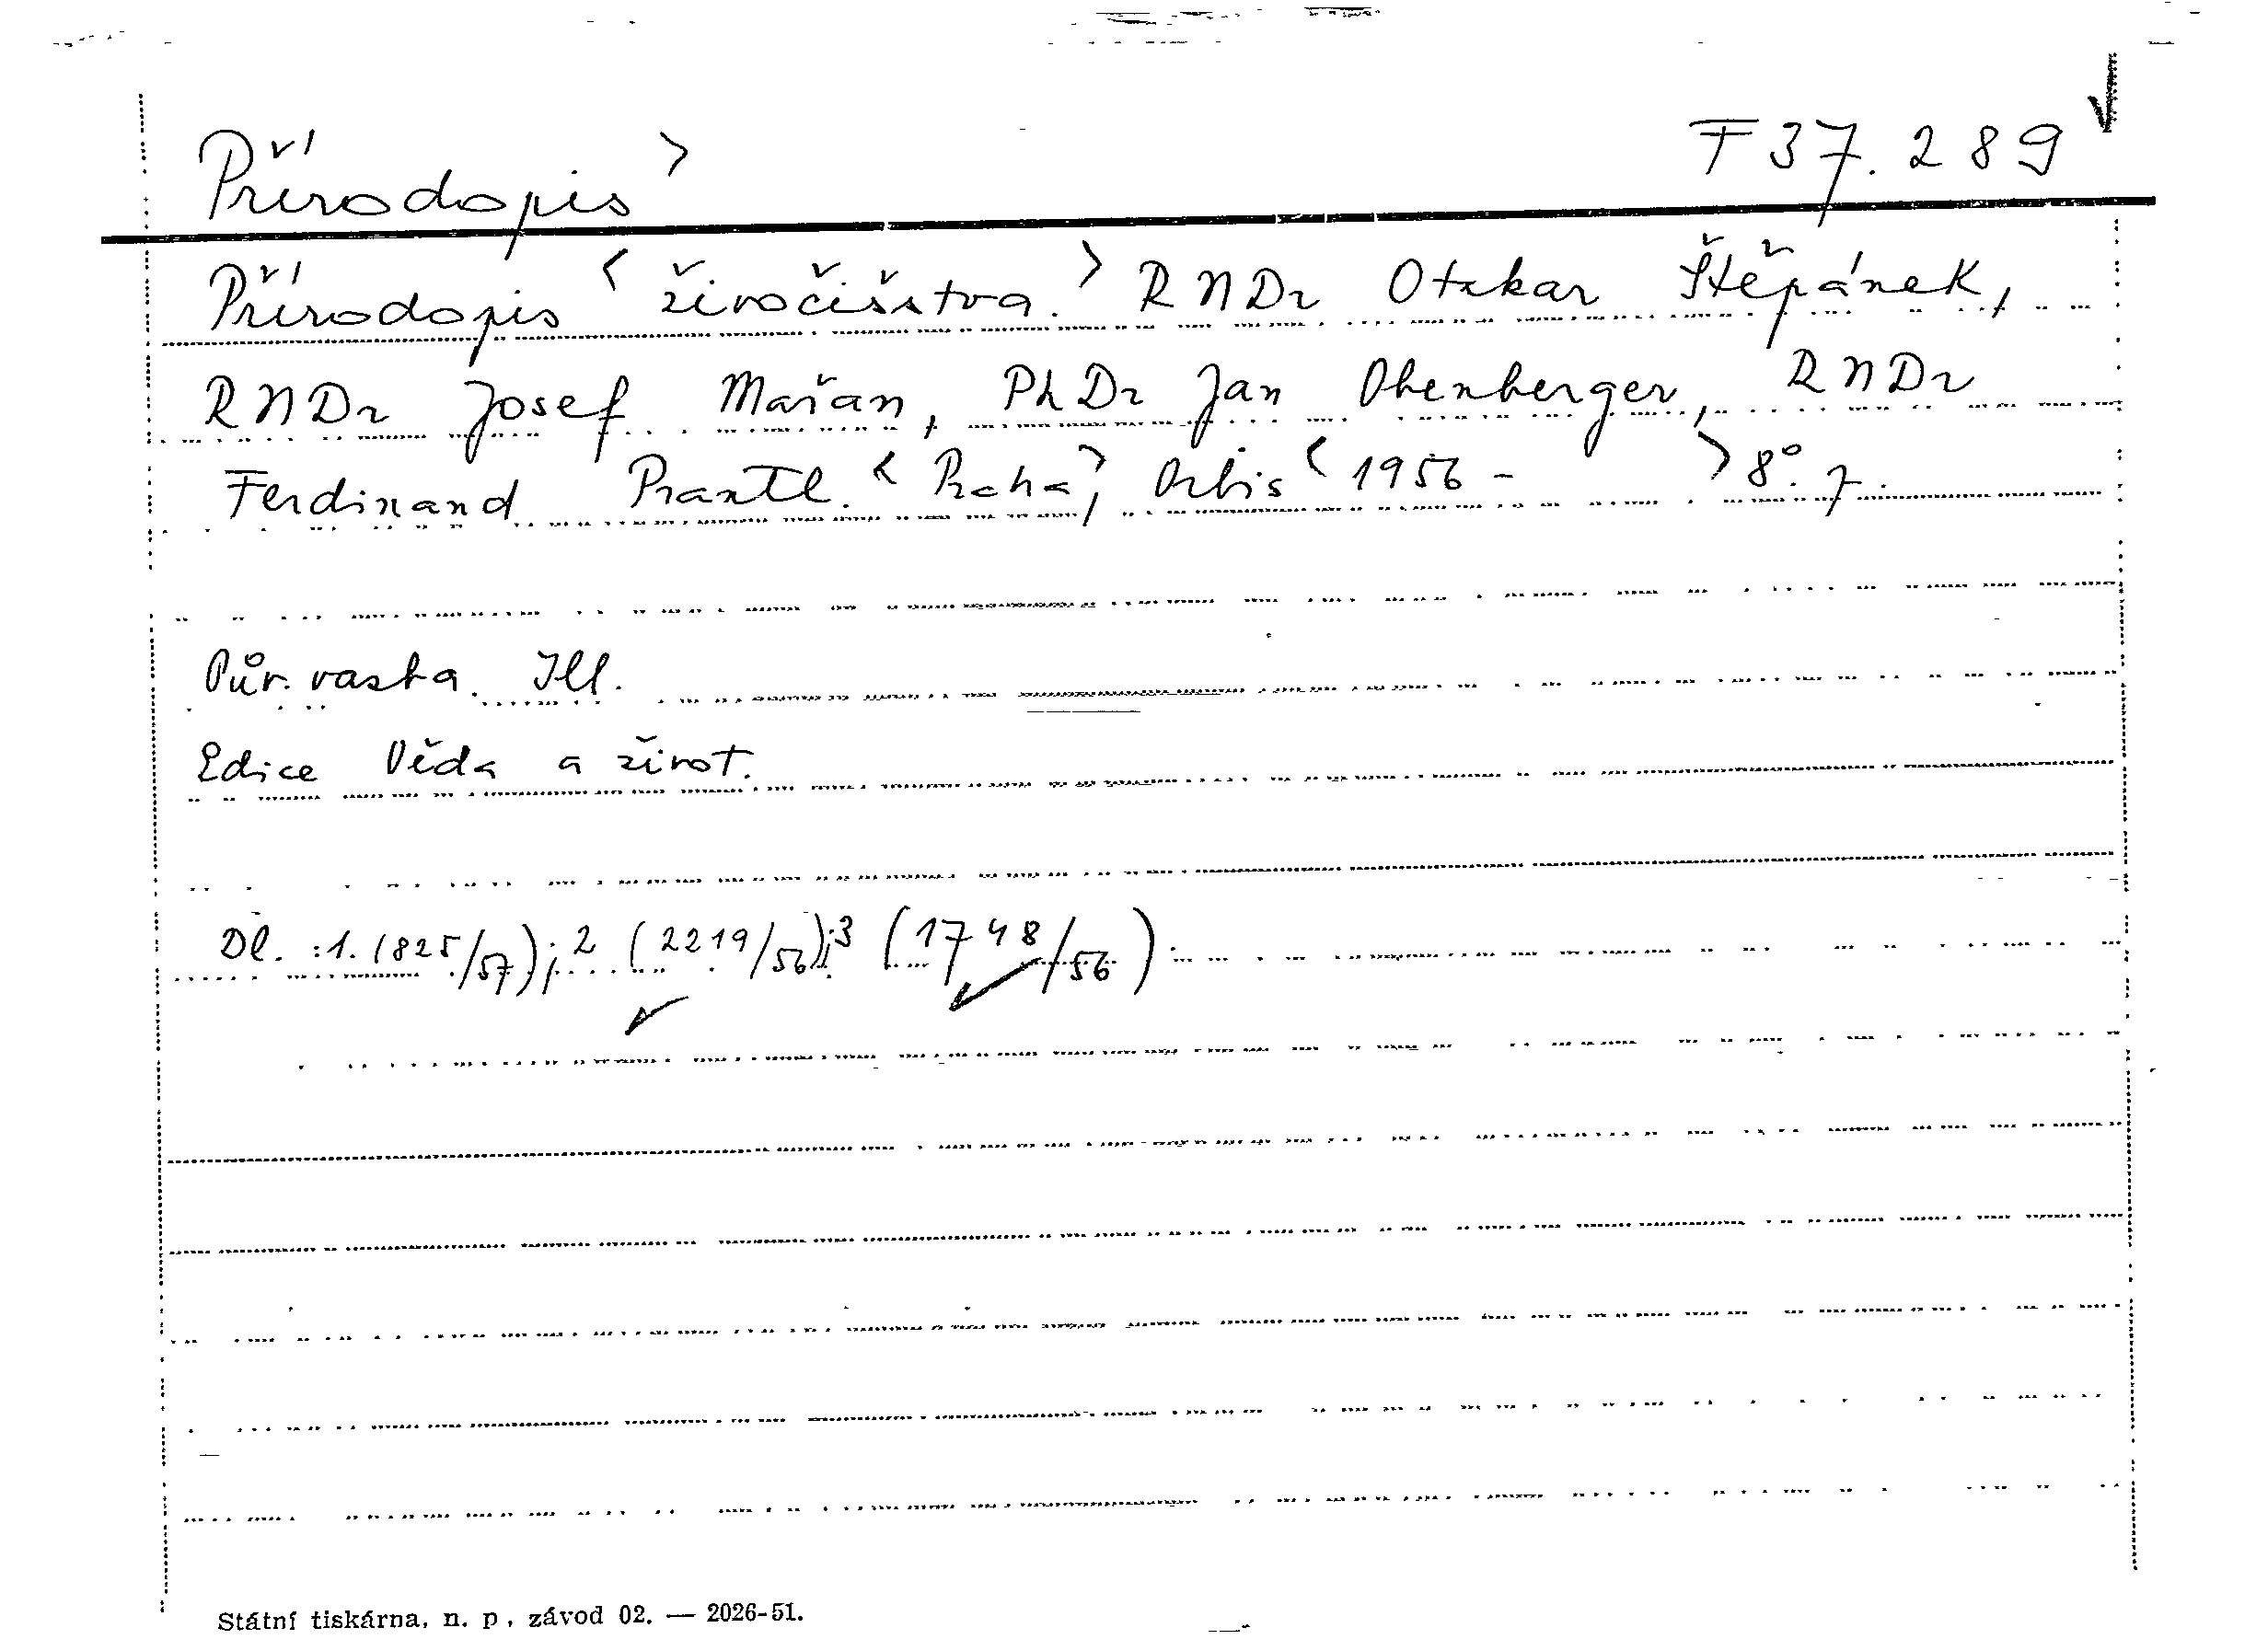 Přírodopis > F 37.289
Přírodopis < živočišstva. > RNDr Otakar Štěpánek,
RNDr Josef Mařan, PhDr Jan Obenberger, RNDr
Ferdinand Prantl. < Praha >, Orbis < 1956 - > 8°. 7.
Pův. vazba. Ill.
Edice Věda a život.
Dl. : 1. (825/57); 2 (2219/56); 3 (1748/56).
Státní tiskárna, n. p., závod 02. — 2026-51.